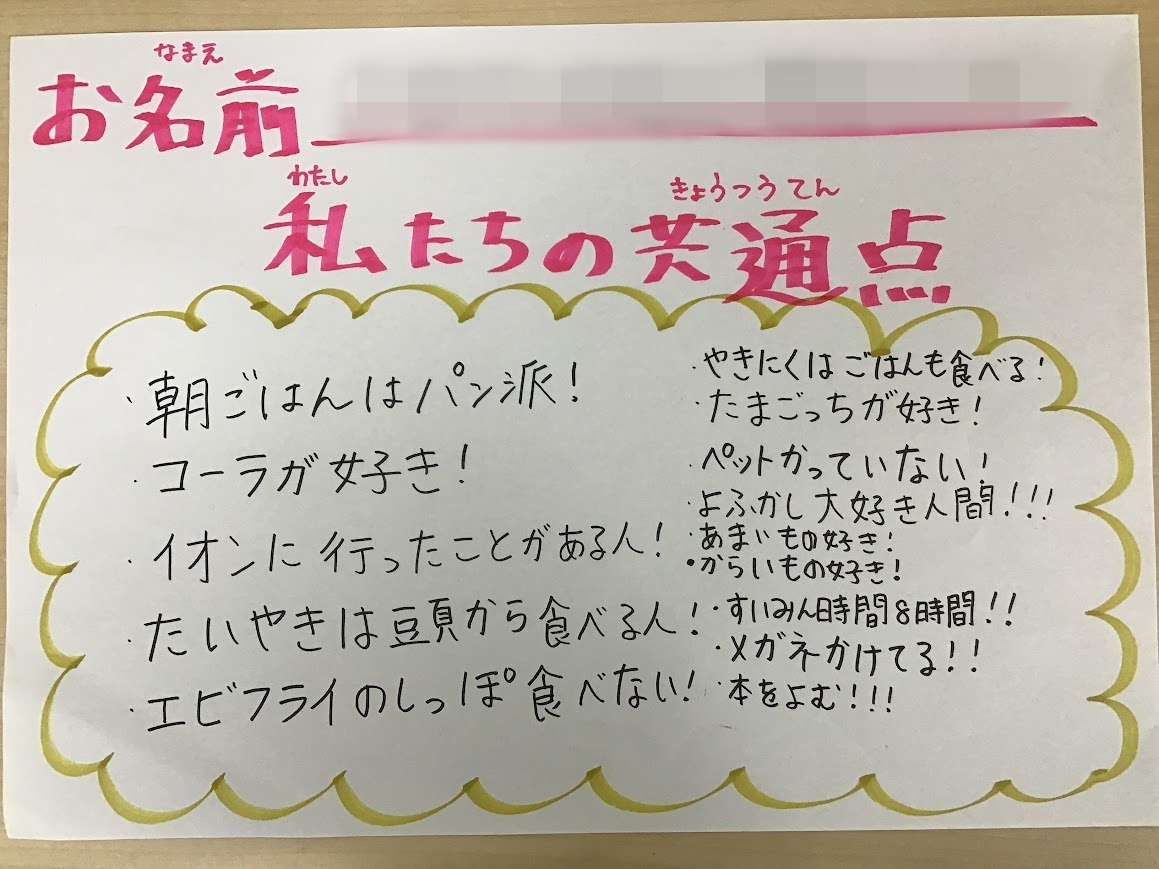 なまえ
お名前
わたし きょうつうてん
私たちの共通点
・朝ごはんはパン派！
・コーラが好き！
・イオンに行ったことがある人！
・たいやきは頭から食べる人！
・エビフライのしっぽ食べない！
・やきにくはごはんも食べる！
・たまごっちが好き！
・ペットかっていない！
・よふかし大好き人間！！！
・あまいもの好き！
・からいもの好き！
・すいみん時間8時間！！
・メガネかけてる！！
・本をよむ！！！